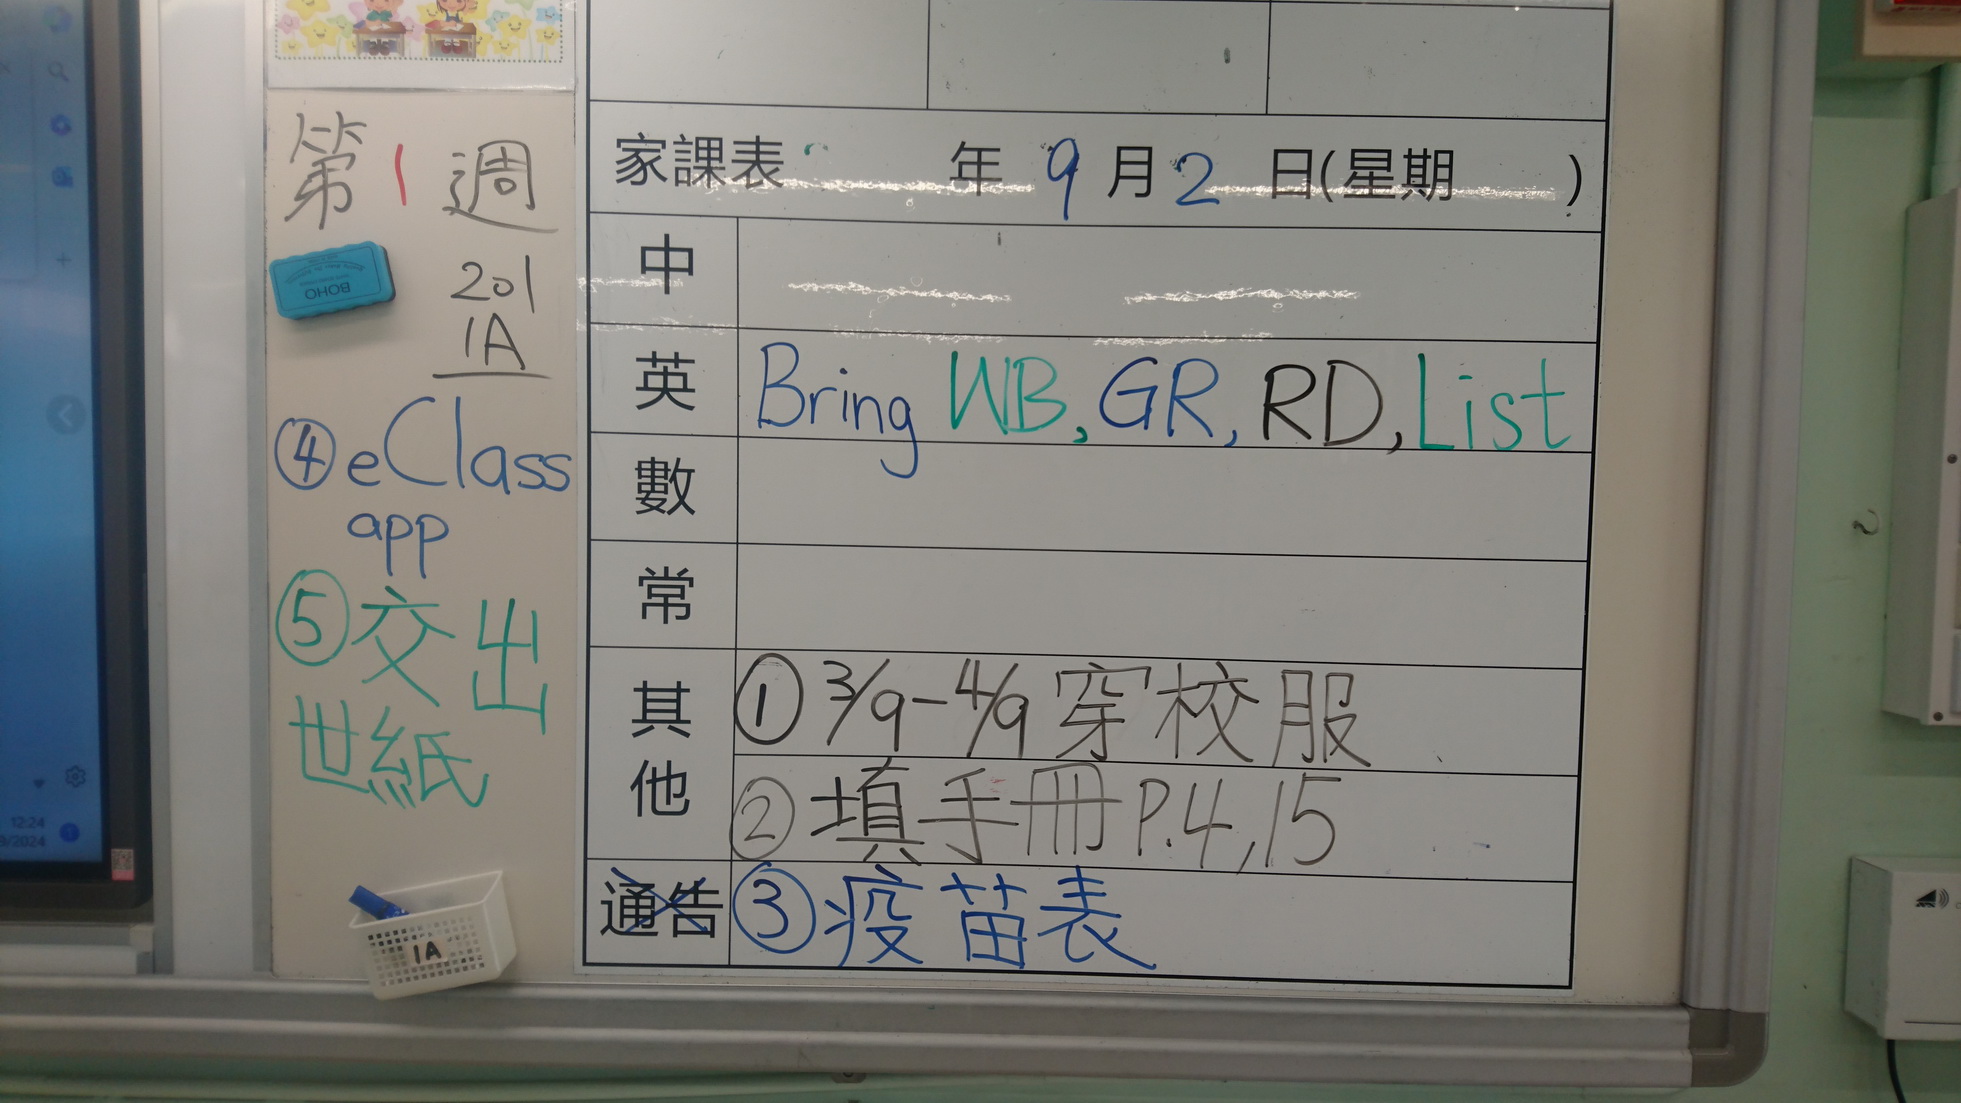 第1週
201
1A
④eClass
app
⑤交出
世紙
家課表 年9月2日(星期 )
中
英 Bring WB, GR, RD, List
數
常
其他 ①3/9-4/9穿校服
②填手冊P.4,15
通告 ③疫苗表
1A
BOHO
12:24
9/2024